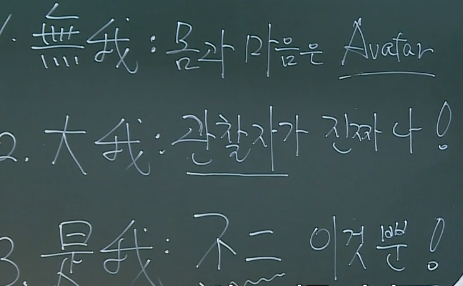 1. 無我: 몸과 마음은 Avatar
2. 大我: 관찰자가 진짜 나!
3. 是我: 不二 이것뿐!